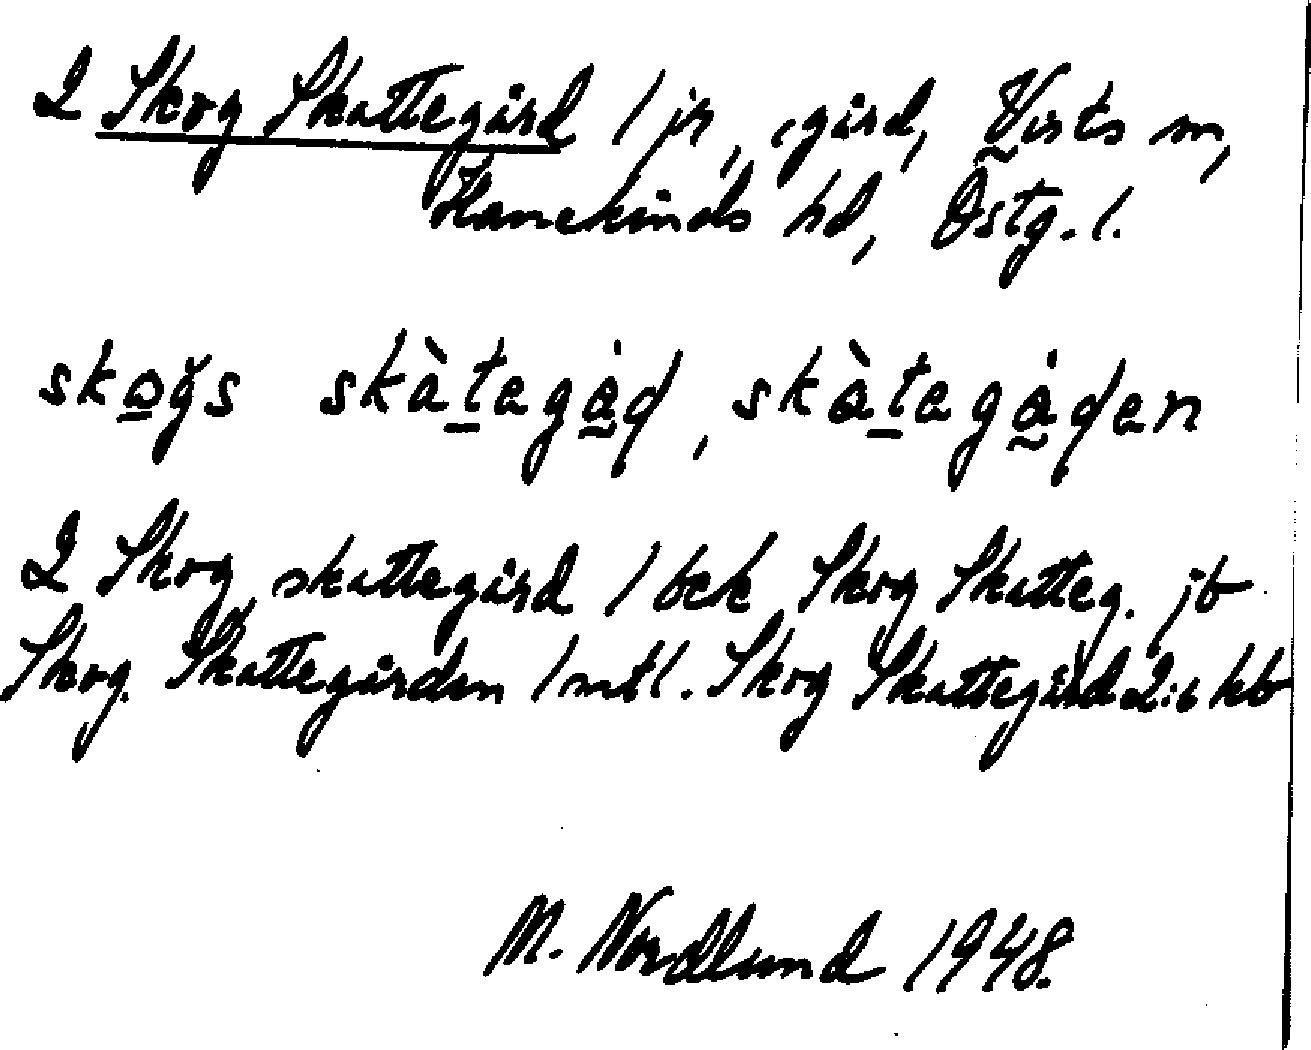 2 Skog Skattegård 1 jr, gård, Vists sn,
Hanekinds hd, Östg. l.
skogs skàtegåd, skàtegåden
2 Skog skattegård 1 bek Skog Skatteg. jb
Skog. Skattegården 1 mtl. Skog Skattegård 2:6 kb
M. Nordlund 1948.